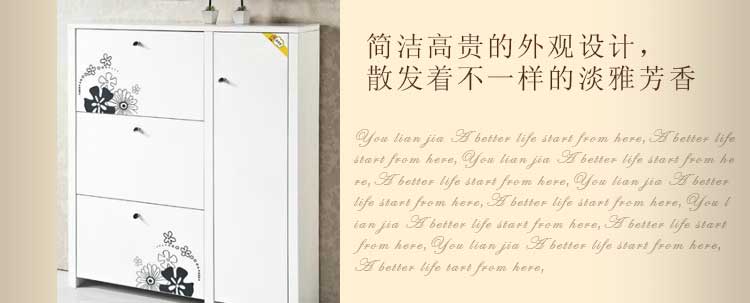 简洁高贵的外观设计，
散发着不一样的淡雅芳香
You lian jia A better life start from here, A better life
start from here, You lian jia A better life start from he
re, A better life start from here, You lian jia A better
life start from here, A better life start from here, You l
ian jia A better life start from here, A better life start
from here, You lian jia A better life start from here,
A better life tart from here,